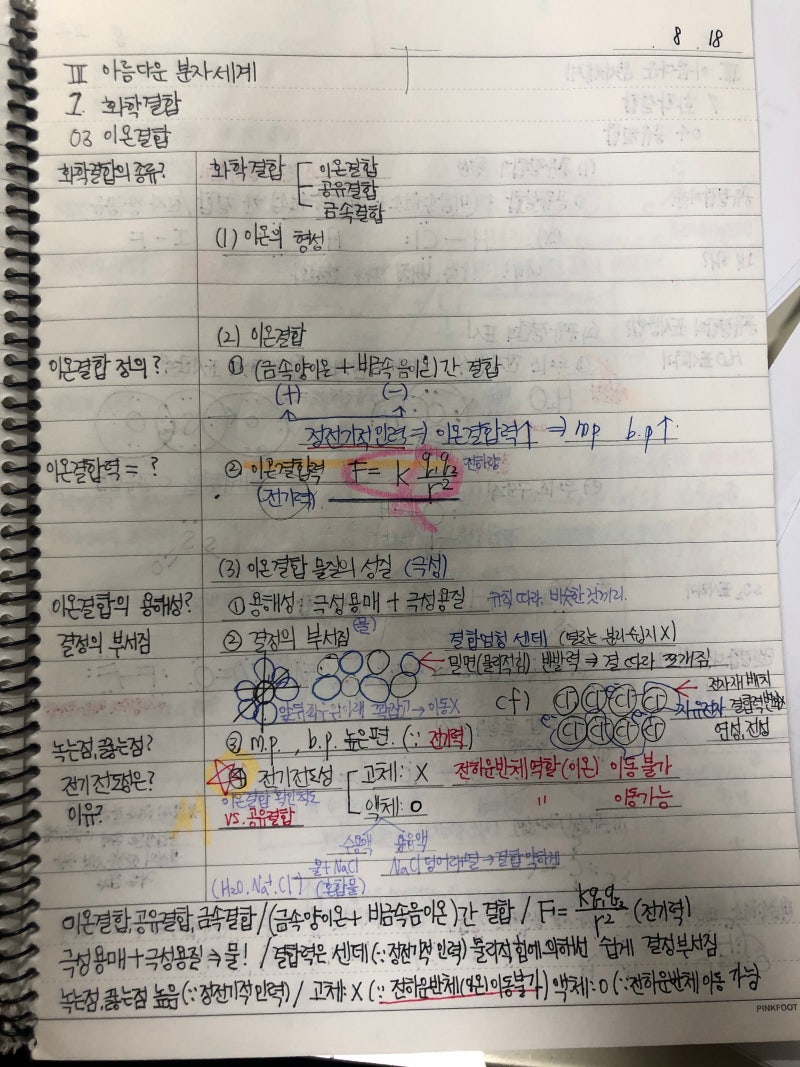 8 . 18
Ⅲ 아름다운 분자세계
1. 화학결합
03 이온결합
화학결합의 종류? 화학결합 이온결합
공유결합
금속결합
(1) 이온의 형성
(2) 이온결합
이온결합 정의? ① (금속양이온 + 비금속음이온)간 결합
(+) (-)
정전기적인력 ⇒ 이온결합력↑ ⇒ mp b.p↑
이온결합력 = ? ② 이온결합력 F = k q₁q₂/r² 전하량
(전기력)
(3) 이온결합 물질의 성질 (극성)
이온결합의 용해성? ① 용해성: 극성용매 + 극성용질 비슷한것끼리
(물)
결정의 부서짐 ② 결정의 부서짐 결합엄청 센데
밀면(물리적힘) 반발력 ⇒ 결 따라 쪼개짐
→ 이동X
cf) 자유전자
연성, 전성
녹는점, 끓는점? ③ m.p., b.p. 높은편. (∵ 전기력)
전기전도성은? ④ 전기전도성 고체: X 전하운반체역할(이온) 이동불가
이유? 액체: O 〃 이동가능
vs. 공유결합
수용액 용융액
물+NaCl NaCl 덩어리+열 → 결합 약하게
(H₂O, Na⁺, Cl⁻) (혼합물)
이온결합, 공유결합, 금속결합 / (금속양이온+비금속음이온)간 결합 / F = kq₁q₂/r² (전기력)
극성용매+극성용질 ⇒ 물! / 결합력은 센데 (∵정전기적 인력) 물리적힘에 의해서 쉽게 결정부서짐
녹는점, 끓는점 높음 (∵정전기적인력) / 고체: X (∵ 전하운반체(이온)이동불가) 액체: O (∵전하운반체 이동 가능)
PINKFOOT